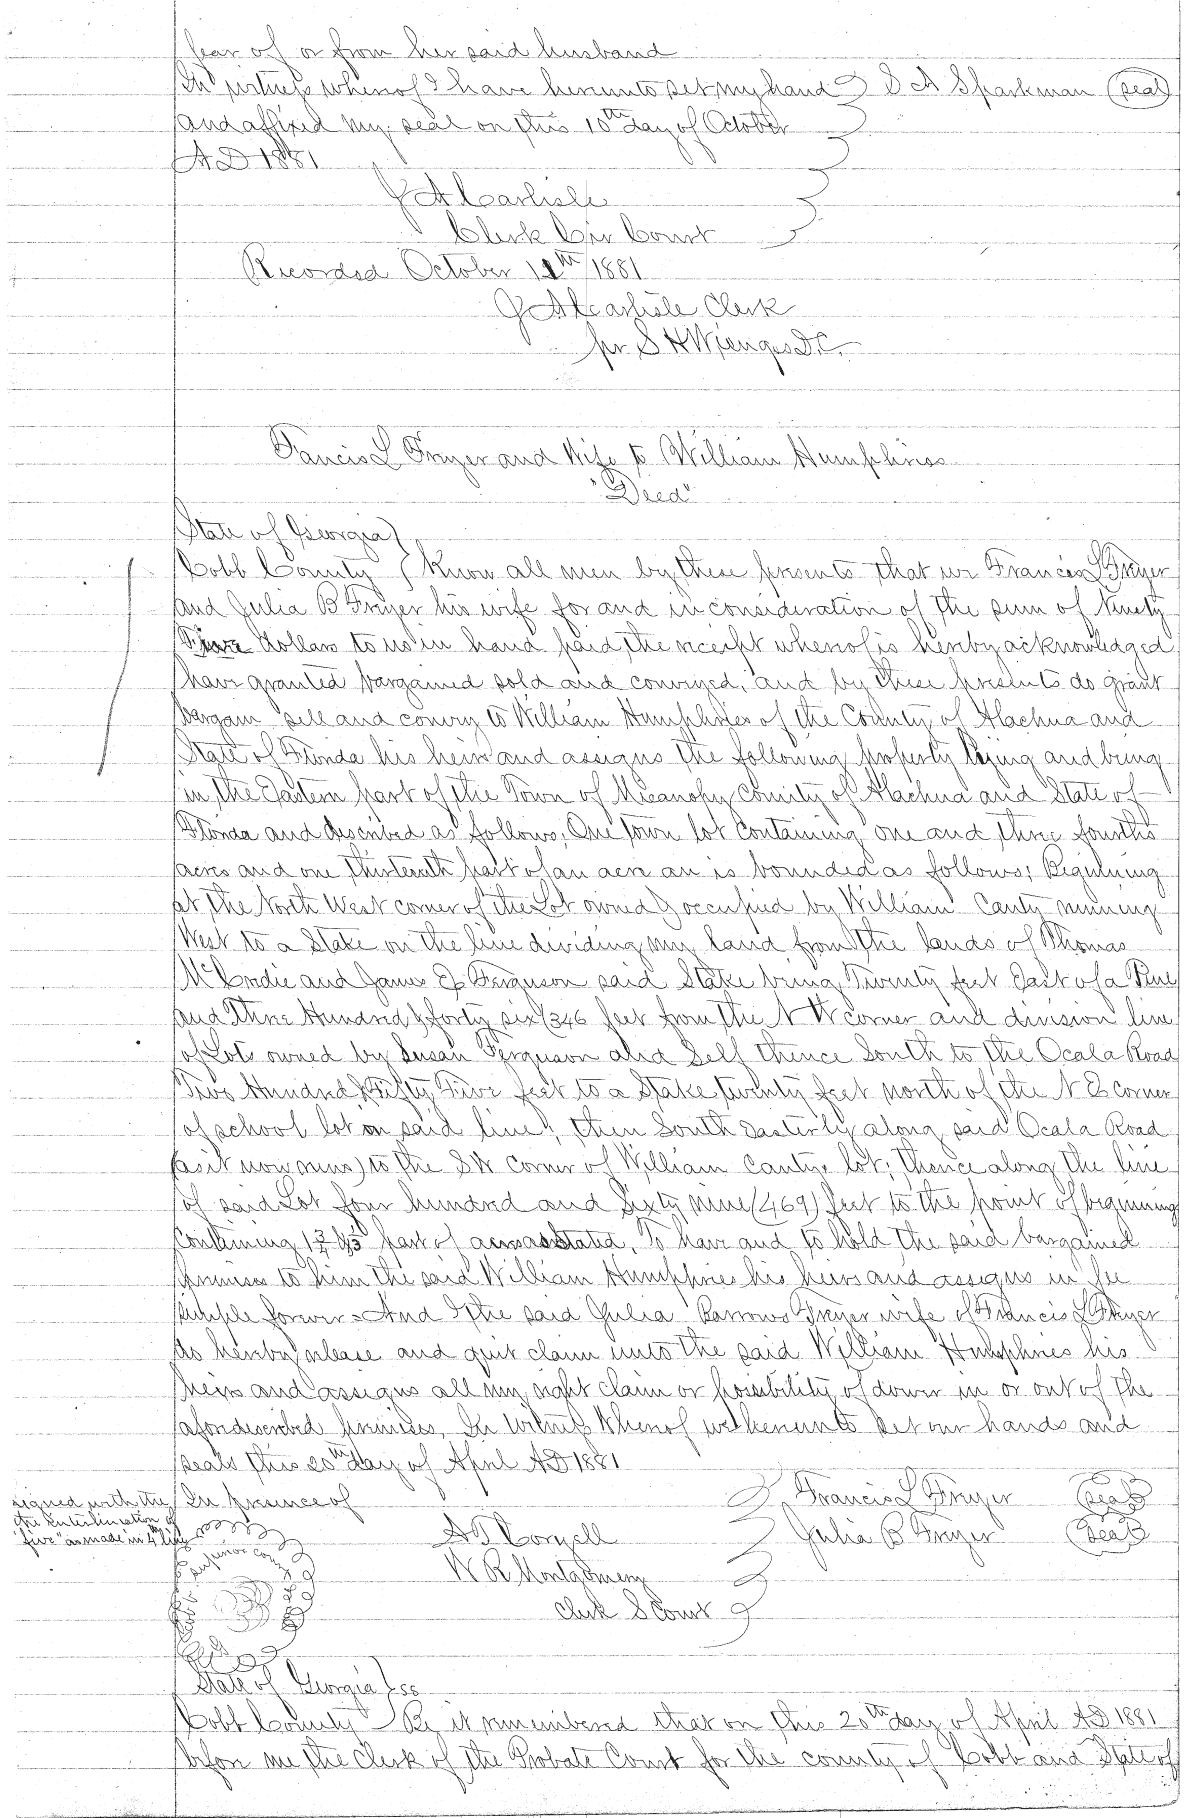 fear of or from her said husband
In witness whereof I have hereunto set my hand S A Sparkman (seal)
and affixed my seal on this 10th day of October
AD 1881
J A Carlisle
Clerk Cir Court
Recorded October 11th 1881
J A Carlisle Clerk
pr S H Wienges D.C.
Francis L Fryer and Wife to William Humphries
"Deed"
State of Georgia
Cobb County Know all men by these presents that we Francis L Fryer
and Julia B Fryer his wife for and in consideration of the sum of Ninety
Five dollars to us in hand paid, the receipt whereof is hereby acknowledged
have granted bargained sold and conveyed, and by these presents do grant
bargain sell and convey to William Humphries of the County of Alachua and
State of Florida his heirs and assigns the following property lying and being
in the Eastern part of the Town of Micanopy County of Alachua and State of
Florida and described as follows; One town lot containing one and three fourths
acres and one thirteenth part of an acre an is bounded as follows; Beginning
at the North West corner of the Lot owned & occupied by William Canty running
West to a Stake on the line dividing my land from the lands of Thomas
McCrodie and James E Ferguson said Stake being Twenty feet East of a Pine
and Three Hundred & forty six (346 feet from the N W corner and division line
of Lots owned by Susan Ferguson and Self thence South to the Ocala Road
Two Hundred & Fifty Five feet to a Stake twenty feet north of the N E corner
of school lot on said line; then South Easterly along said Ocala Road
(as it now runs) to the S W corner of William Cantys lot; thence along the line
of said Lot four hundred and Sixty nine (469) feet to the point of beginning
Containing 1 3/4 & 1/13 part of acres as stated. To have and to hold the said bargained
premises to him the said William Humphries his heirs and assigns in fee
simple forever = And I the said Julia Barrows Fryer wife of Francis L Fryer
do hereby release and quit claim unto the said William Humphries his
heirs and assigns all my right claim or possibility of dower in or out of the
aforedescribed premises. In Witness Whereof we hereunto set our hands and
seals this 20th day of April AD 1881
signed with the
the enterlineation of
"five" as made in 4th line
In presence of
Francis L Fryer (seal)
A T Coryell Julia B Fryer (seal)
W R Montgomery
Clerk S Court
Superior Court
State of Georgia } ss
Cobb County Be it remembered that on this 20th day of April AD 1881
before me the Clerk of the Probate Court for the county of Cobb and State of